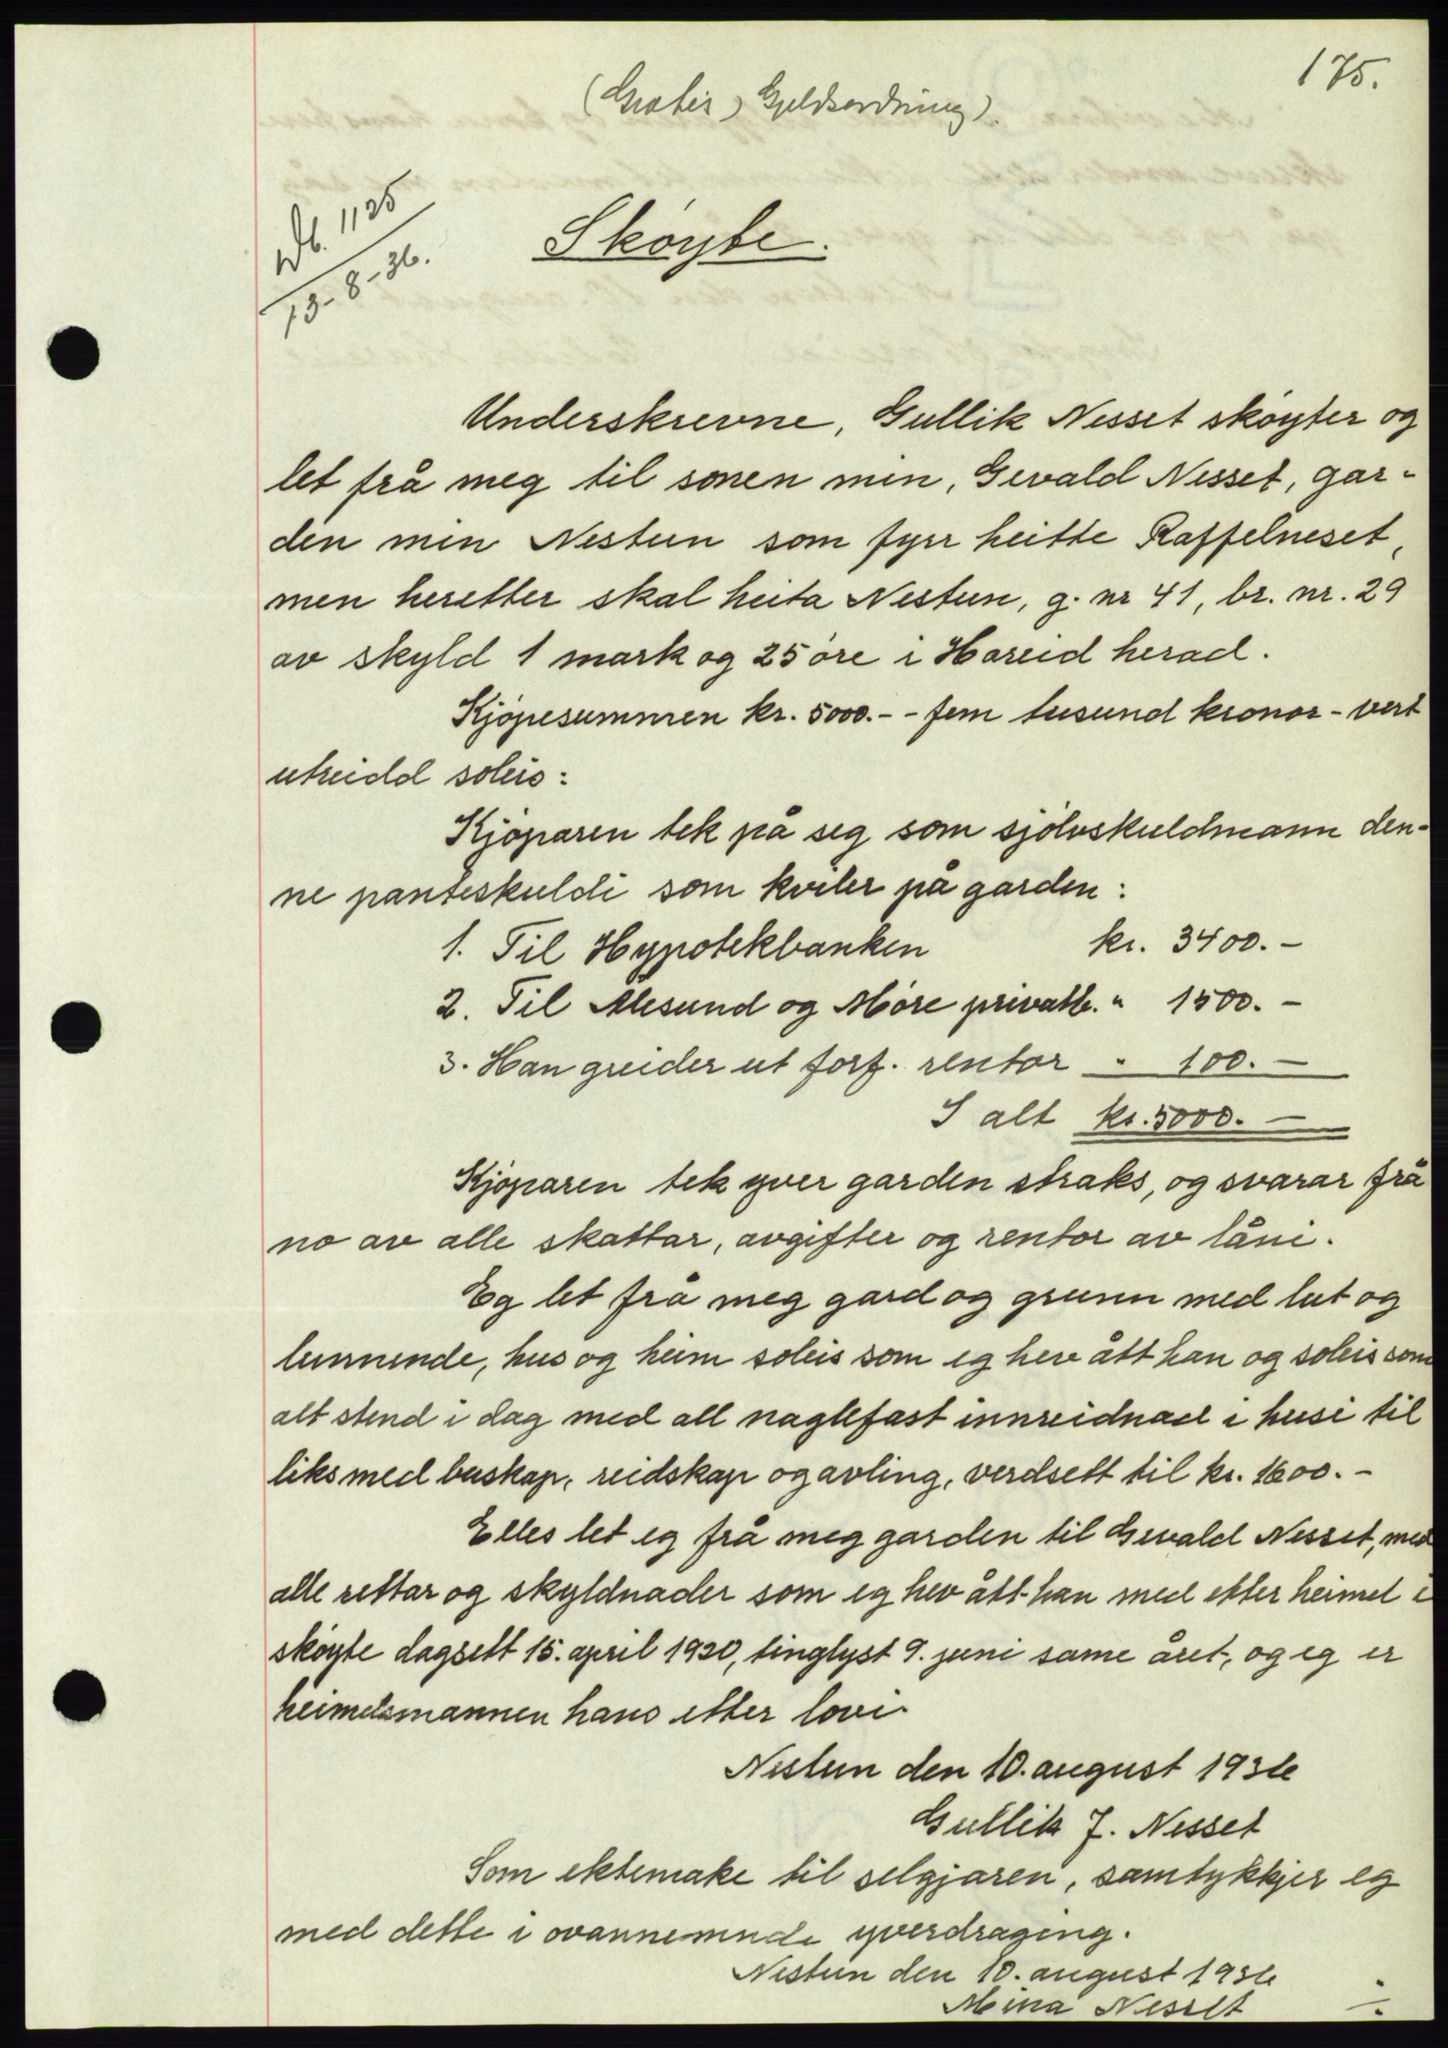 175.
(Gratis) Gjeldsordning).
Db. 1125
13-8-36.
Skøyte.
Underskrevne, Gullik Nesset skøyter og
let frå meg til sonen min, Gevald Nesset, gar-
den min Nestun som fyrr heitte Raffelneset,
men heretter skal heita Nestun, g. nr 41, br. nr. 29
av skyld 1 mark og 25 øre i Hareid herad.
Kjøpesummen kr. 5000.- - fem tusund kronor - vert
utreidd soleis:
Kjøparen tek på seg som sjølvskuldmann den-
ne panteskuldi som kviler på garden:
1. Til Hypotekbanken kr. 3400.-
2. Til Ålesund og Møre privatb. " 1500.-
3. Han greider ut forf. rentor " 100.-
I alt kr. 5000.-
Kjøparen tek yver garden straks, og svarar frå
no av alle skattar, avgifter og rentor av låni.
Eg let frå meg gard og grunn med lut og
lunnende, hus og heim soleis som eg hev ått han og soleis som
alt stend i dag med all naglefast innreidnad i husi til
liks med buskap, reidskap og avling, verdsett til kr. 1600.-
Elles let eg frå meg garden til Gevald Nesset, med
alle rettar og skyldnader som eg hev ått han med etter heimel i
skøyte dagsett 15. april 1920, tinglyst 9. juni same året, og eg er
heimelsmannen hans etter lovi.
Nestun den 10. august 1936
Gullik J. Nesset
Som ektemake til selgjaren, samtykkjer eg
med dette i ovannemnde yverdraging.
Nestun den 10. august 1936
Mina Nesset
./.